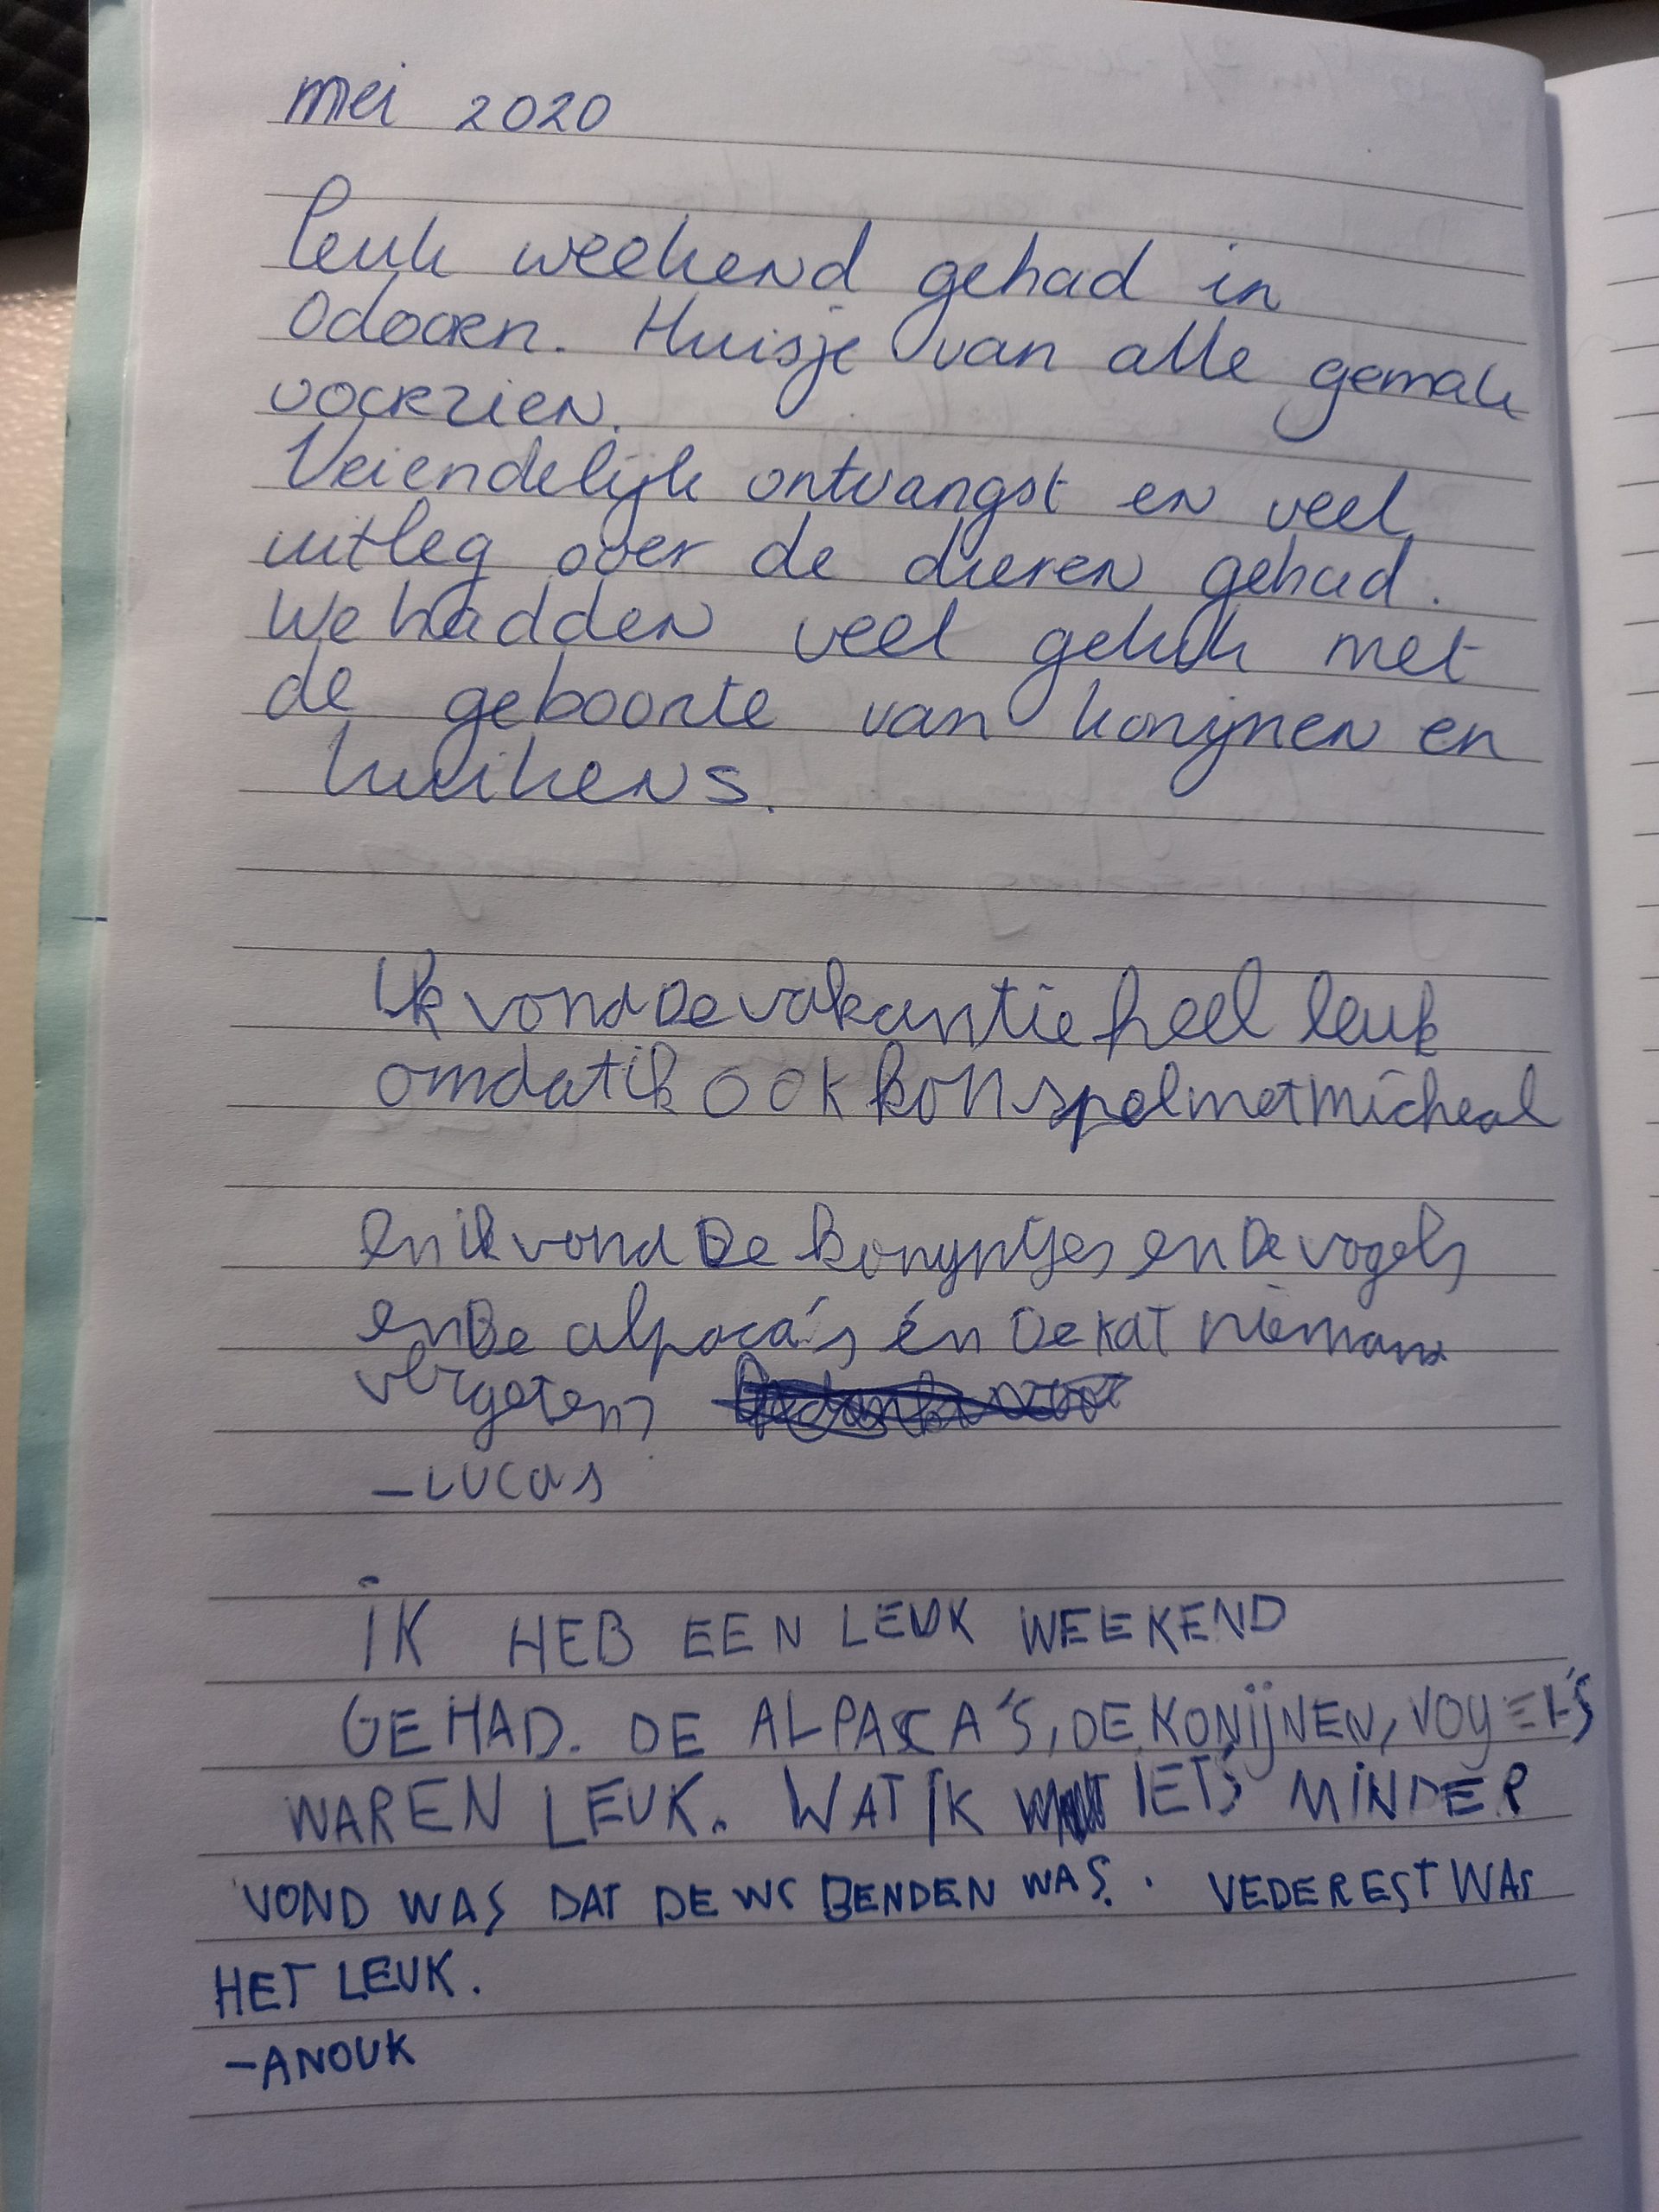 mei 2020
Leuk weekend gehad in
Odoorn. Huisje van alle gemak
voorzien.
Vriendelijk ontvangst en veel
uitleg over de dieren gehad.
We hadden veel geluk met
de geboorte van konijnen en
kuikens.
Ik vond De vakantie heel leuk
omdat ik ook kon spelmet micheal
en ik vond De konyntjes en De vogels
en De alpaca's én De kat niemand
vergeten,
-Lucas
IK HEB EEN LEUK WEEKEND
GEHAD. DE ALPACA'S, DE KONIJNEN, VOGEL'S
WAREN LEUK. WAT IK IETS MINDER
VOND WAS DAT DE WC BENDEN WAS. VEDEREST WAS
HET LEUK.
-ANOUK